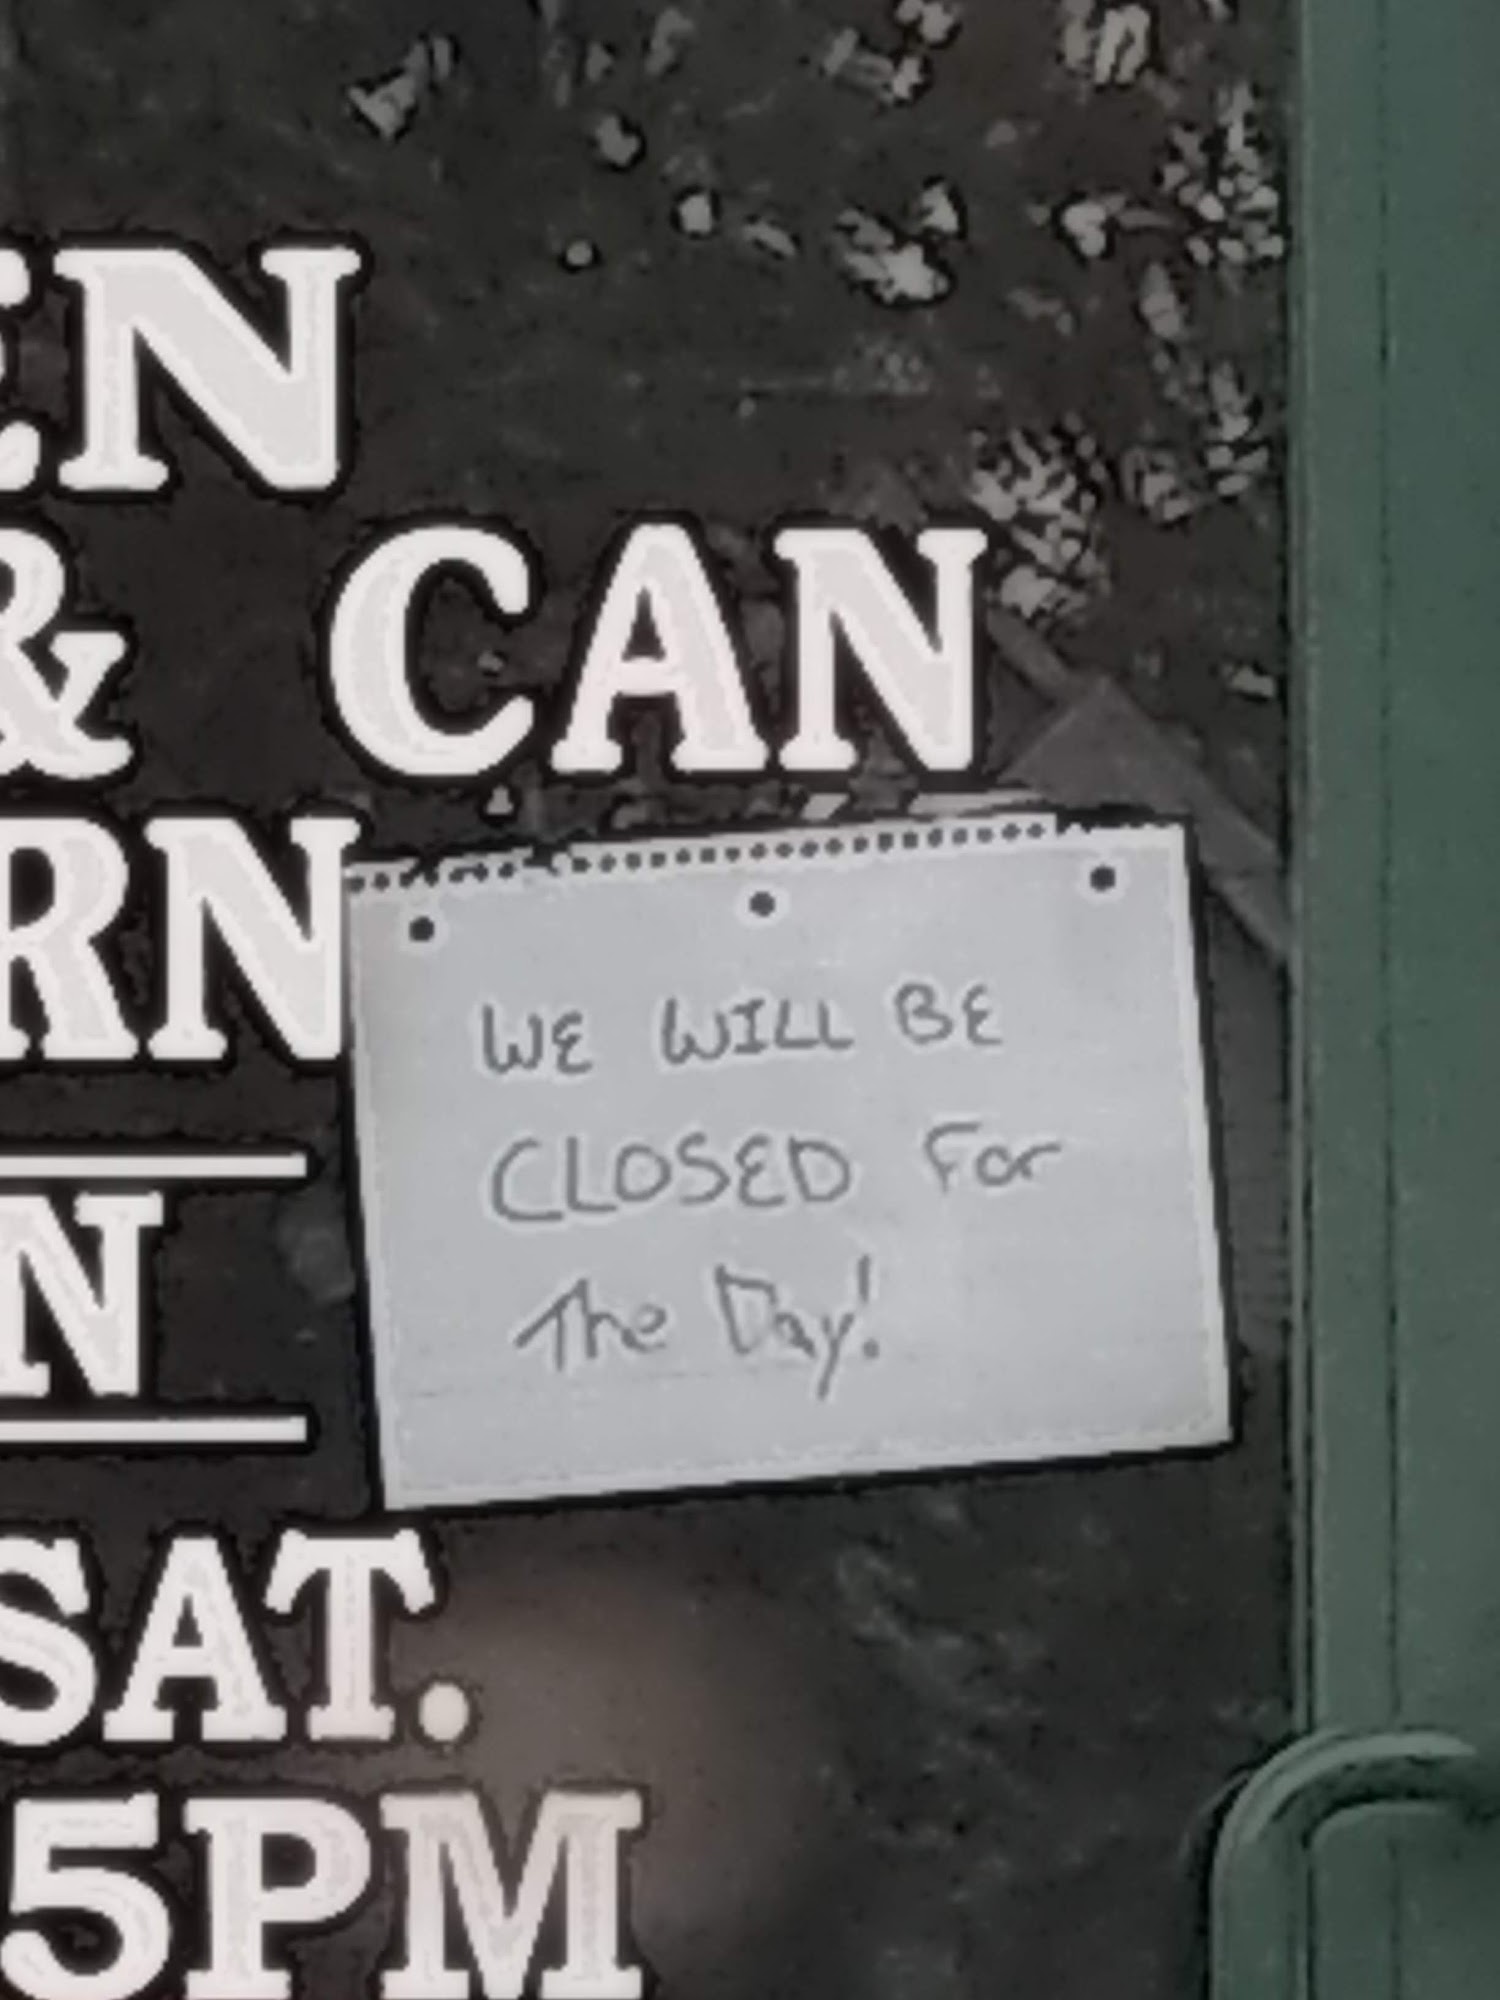 EN
& CAN
RN
WE WILL BE
CLOSED For
The Day!
N
SAT.
5PM